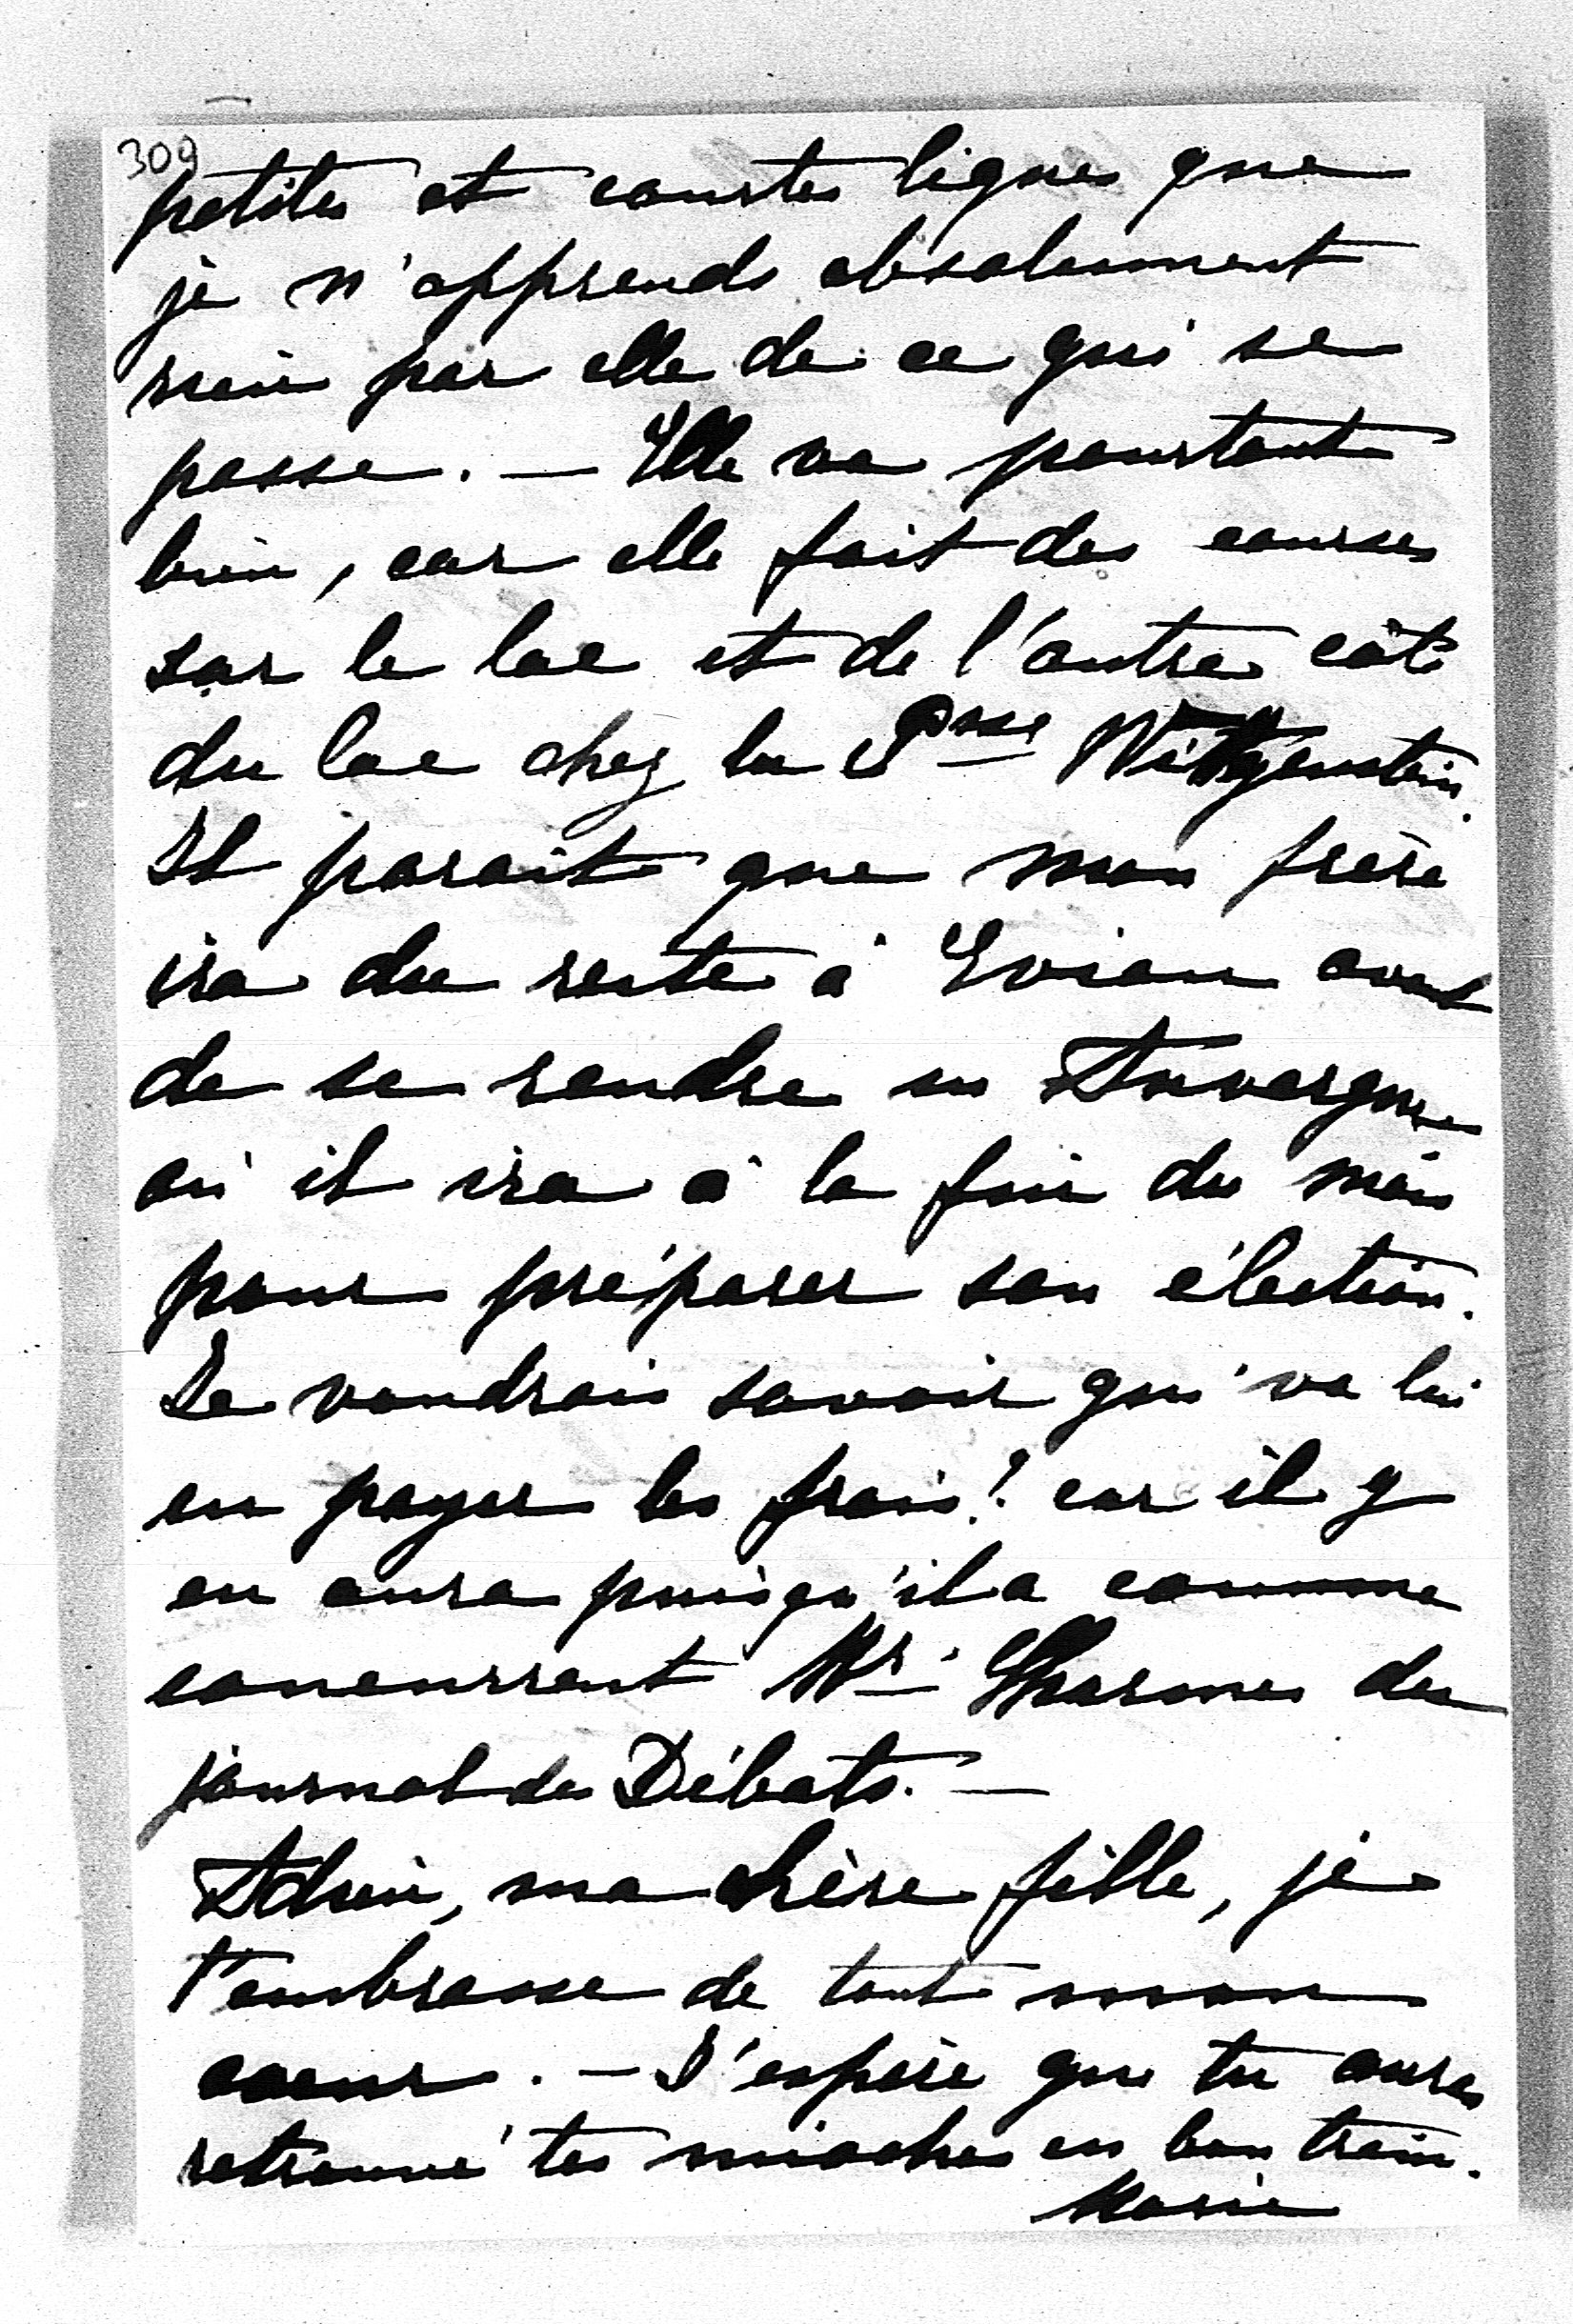 309
petites et courtes lignes que
je n'apprends absolument
rien par elle de ce qui se
passe. — Elle va pourtant
bien, car elle fait des courses
sur le lac et de l'autre côté
du lac chez la Psse Wittgenstein.
Il parait que mon frère
ira du reste à Evian avant
de se rendre en Auvergne
où il ira à la fin du mois
pour préparer son élection.
Je voudrais savoir qui va lui
en payer les frais? car il y
en aura puisqu'il a comme
concurrent Mr. Charmes du
journal des Débats. —
Adieu, ma chère fille, je
t'embrasse de tout mon
coeur. — J'espère que tu auras
retrouvé tes mioches en bon train.
Marie